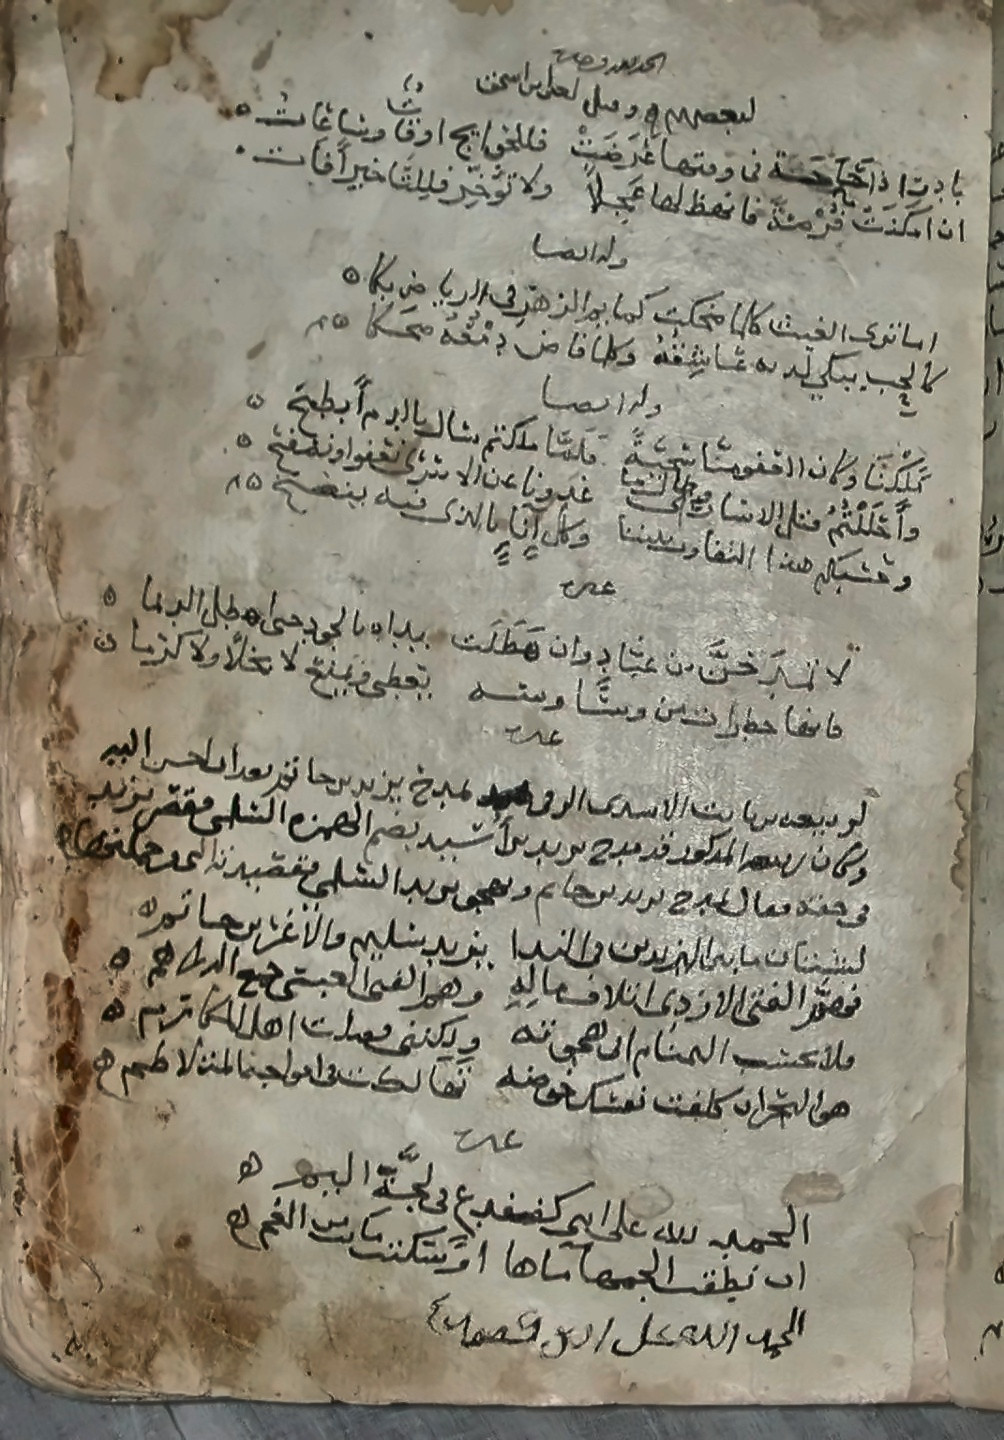 الحمد لله وحده
لبعضهم وقيل لعلي بن اسحق
بادر اذا حاجة في وقتها عرضت فللحوايج اوقات وساعات
ان امكنت فرصة فانهض لها عجلا ولا تؤخر فللتاخير آفات
وله ايضا
اما ترى الغيث كلما ضحكت كمايم الزهر في الرياض بكا
كالحب يبكي لديه عاشقه وكلما فاض دمعه ضحكا
وله ايضا
ملكنا وكان العفو منا سجية فلما ملكتم سال بالدم أبطح
وحللتم قتل الاسارى وطالما غدونا عن الاسرى نعفوا ونصفح
وحسبكم هذا التفاوت بيننا وكل إناء بالذي فيه ينضح
غيره
لا تمدحن ابن عباد وان هطلت يداه بالجود حتى اخجل الديما
فانها خطرات من وساوسه يعطي ويمنع لا بخلا ولا كرما
غيره
لربيعة بن ثابت الاسدي الرقي يمدح يزيد بن حاتم
وكان ربيعة المذكور قد مدح يزيد بن أسيد بضم الهمزة السلمي فقصر يزيد
في حقه فقال يمدح يزيد بن حاتم ويهجو يزيد السلمي بقصيدته التي من جملتها
لشتان ما بين اليزيدين في الندا يزيد سليم والأغر بن حاتم
فهم الفتى الازدي اتلاف ماله وهم الفتى العبسي جمع الدراهم
فلا يحسب التمتام اني هجوته ولكنني فضلت اهل المكارم
هو البحر ان كلفت نفسك خوضه تهالكت في امواجه المتلاطم
غيره
الحمد لله على انني كضفدع في لجة اليم
ان نطقت الجمها ماها او سكتت ماتت من الغم
الحمد لله على